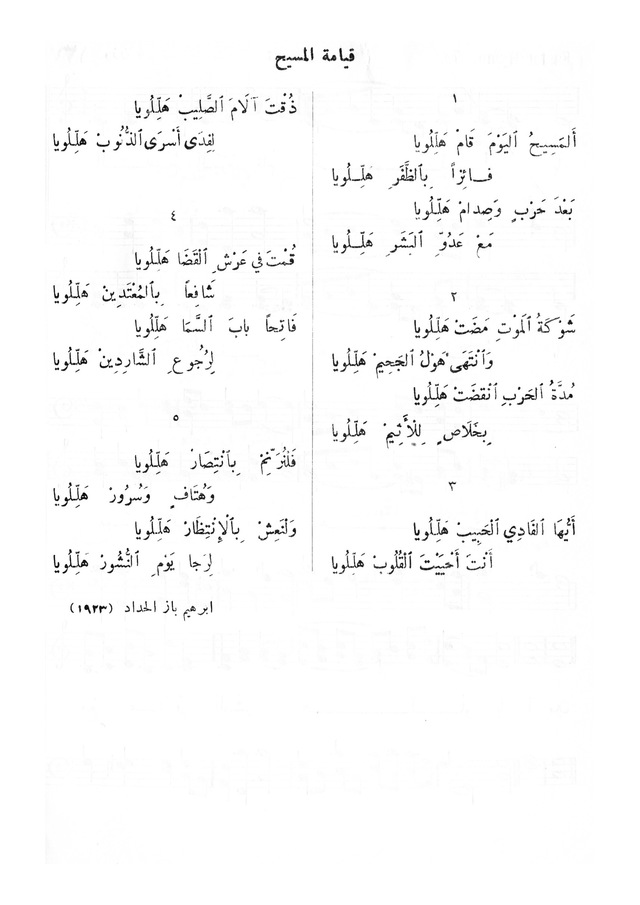 قيامة المسيح
١
أَلمَسِيحُ ٱليَوْمَ قَامْ هَلِّلُويا
فَائِزاً بِالظَّفَرِ هَلِّلُويا
بَعْدَ حَرْبٍ وَصِدامْ هَلِّلُويا
مَعْ عَدُوِّ ٱلبَشَرِ هَلِّلُويا
٢
شَوْكَةُ ٱلمَوْتِ مَضَتْ هَلِّلُويا
وَٱنْتَهَى هَوْلُ ٱلجَحِيمْ هَلِّلُويا
مُدَّةُ ٱلحَرْبِ ٱنْقضَتْ هَلِّلُويا
بِخَلَاصٍ لِلْأَثِيمْ هَلِّلُويا
٣
أَيُّهَا ٱلفَادِي ٱلْحَبِيبْ هَلِّلُويا
أَنْتَ أَحْيَيْتَ ٱلْقُلُوبْ هَلِّلُويا
ذُقْتَ آلَامَ ٱلصَّلِيبْ هَلِّلُويا
لِفِدَى أَسْرَى ٱلذُّنُوبْ هَلِّلُويا
٤
قُمْتَ فِي عَرْشِ ٱلْقَضَا هَلِّلُويا
شَافِعاً بِٱلمُعْتَدِينْ هَلِّلُويا
فَاتِحاً بابَ السَّمَا هَلِّلُويا
لِرُجُوعِ ٱلشَّارِدِينْ هَلِّلُويا
٥
فَلْنُرَنِّمْ بِٱنْتِصَارْ هَلِّلُويا
وَهُتَافٍ وَسُرُورْ هَلِّلُويا
وَلْنَعِشْ بِٱلْإِنْتِظَارْ هَلِّلُويا
لِرَجا يَوْمِ ٱلنُّشُورْ هَلِّلُويا
ابرهيم باز الحداد (١٩٢٣)